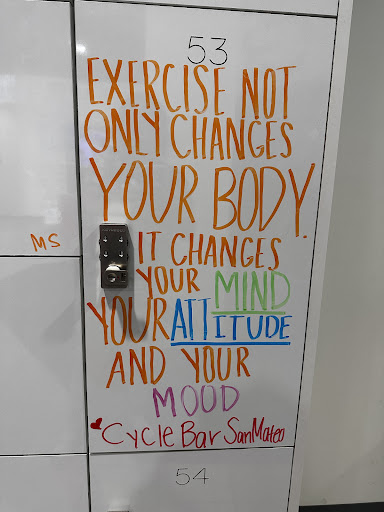 53
EXERCISE NOT
ONLY CHANGES
YOUR BODY.
IT CHANGES
YOUR MIND
YOUR ATTITUDE
AND YOUR
MOOD
CycleBar SanMateo
54
MS